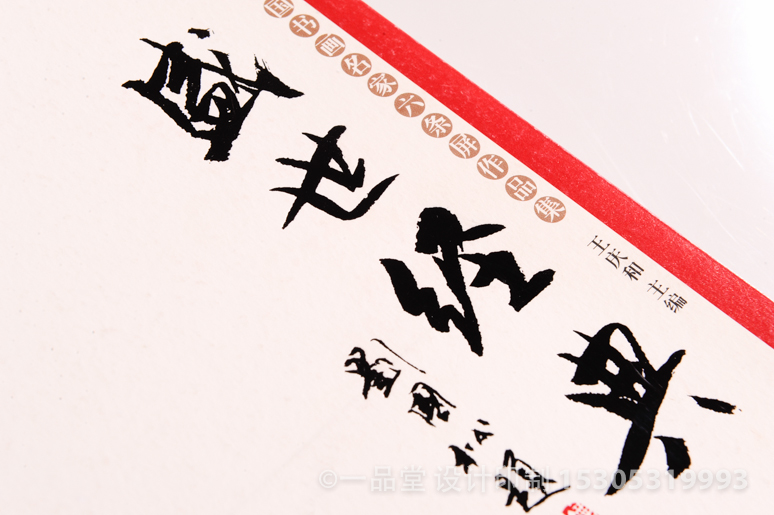 国书画名家六条屏作品集
盛世经典
王庆和 主编
©一品堂 设计印制 15305319993